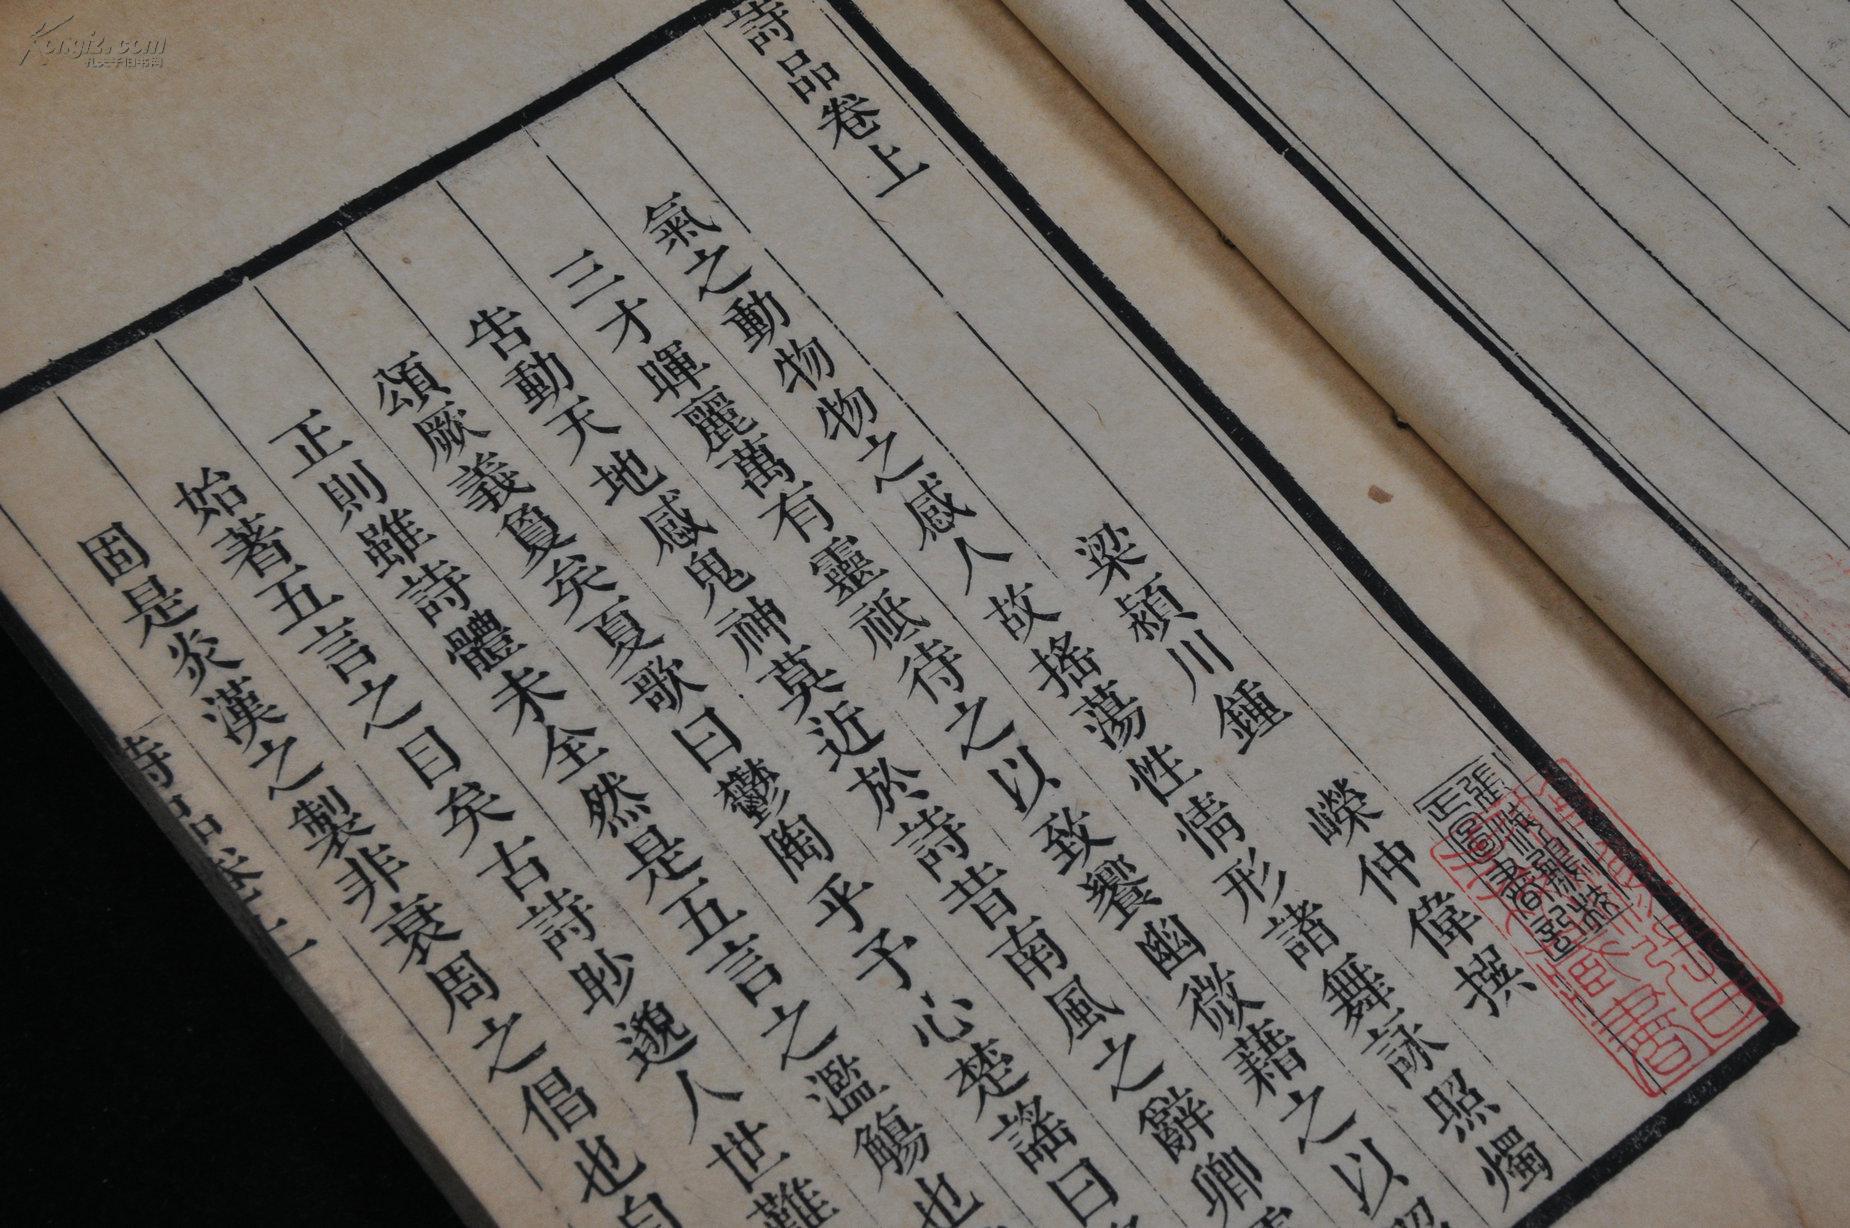 詩品卷上
梁潁川鍾嶸仲偉撰
氣之動物物之感人故搖蕩性情形諸舞詠照燭
三才暉麗萬有靈祗待之以致饗幽微藉之以
告動天地感鬼神莫近於詩昔南風之辭卿
頌厥義敻矣夏歌曰鬱陶乎予心楚謠曰
正則雖詩體未全然是五言之濫觴也
始著五言之目矣古詩眇邈人世難
固是炎漢之製非衰周之倡也自
詩品卷上
Kongfz.com
孔夫子旧书网